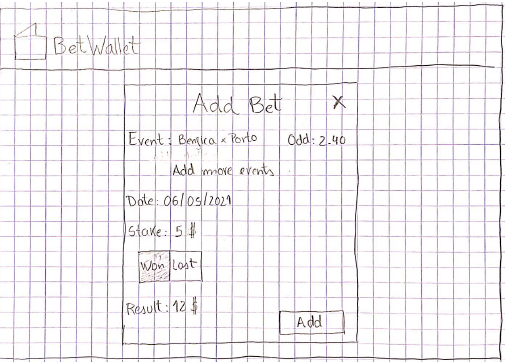 BetWallet
Add Bet X
Event: Benfica x Porto Odd: 2.40
Add more events
Date: 06/05/2021
Stake: 5 $
Won Lost
Result: 12 $
Add